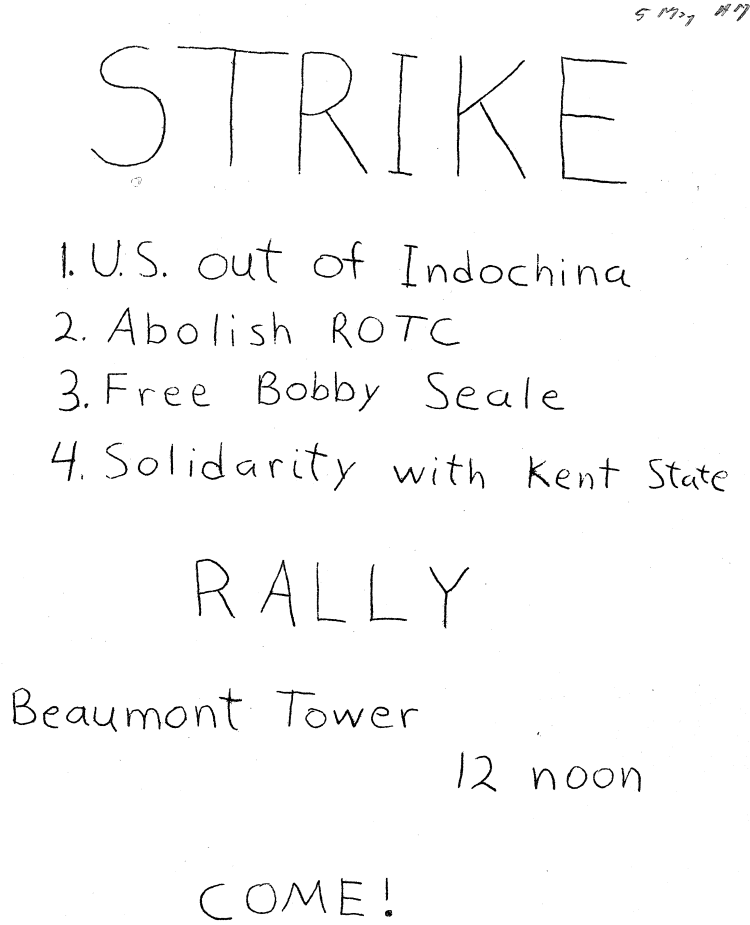 5 May AM
STRIKE
1. U.S. out of Indochina
2. Abolish ROTC
3. Free Bobby Seale
4. Solidarity with Kent State
RALLY
Beaumont Tower
12 noon
COME!